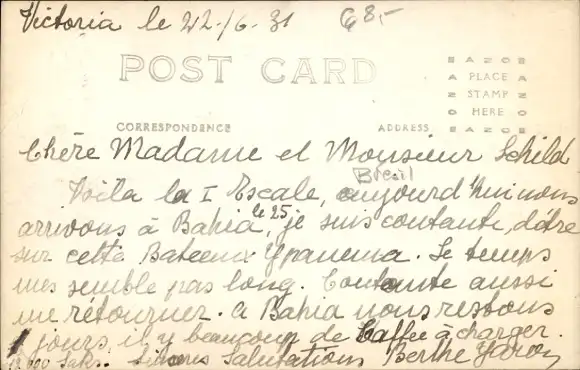 Victoria le 22-/6-31 68,-
POST CARD
AZO
PLACE
STAMP
HERE
AZO
CORRESPONDENCE ADDRESS
Chère Madame et Monsieur Schild
Brésil
Voila la I Escale, aujourd'hui nous
arrivons à Bahia, le 25, je suis contante, d'être
sur cette Bateeux Ypanema. Le temps
mes semble pas long. Contante aussi
me rétourner. a Bahia nous restons
jours, il y beaucoup de Caffee à charger.
Saks. Salutations Berthe